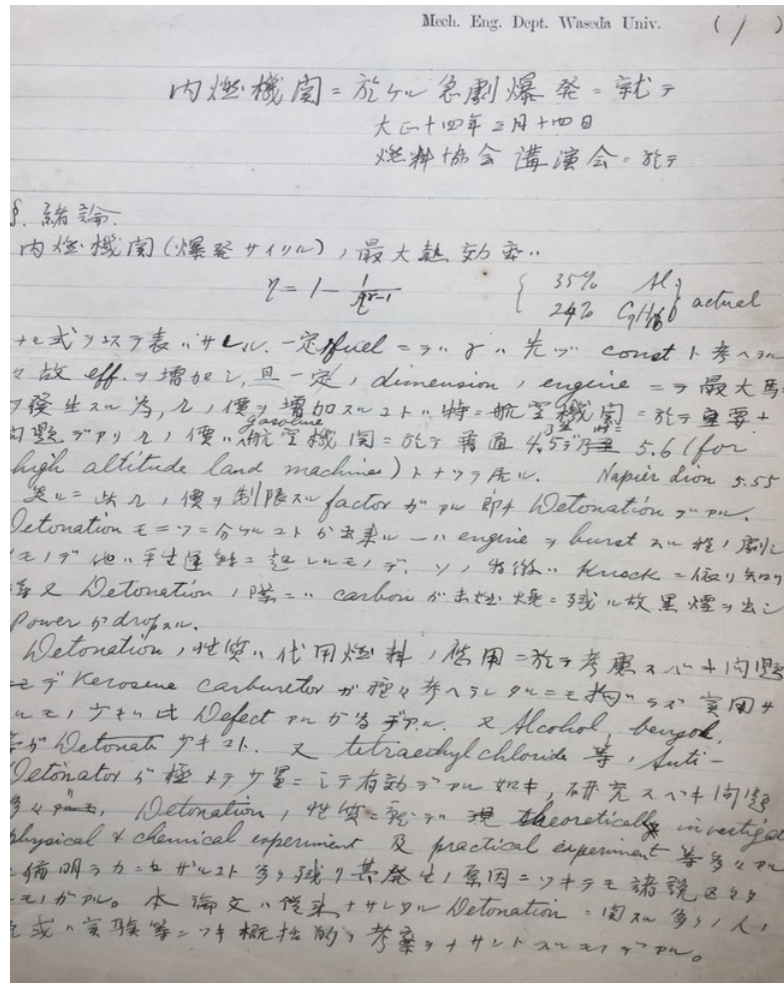 Mech. Eng. Dept. Waseda Univ. (1)
内燃機関ニ於ケル急劇爆発ニ就テ
大正十四年三月十四日
燃料協会講演会ニ於テ
§. 緒論.
内燃機関(爆発サイクル)ノ最大熱効率ハ
η = 1 -
35% Al.
24% actual
ナル式ヲ以テ表ハサレル. 一定ノfuelニテハγハ先ヅconstト考ヘラル
故eff.ヲ増加シ,且一定ノdimensionノengineニテ最大馬
発生スル為,ノ値ヲ増加スルコトハ特ニ航空機関ニ於テ重要ナ
問題デアリ,ノ値ハgasoline航空機関ニ於テ普通4.5 5.6 (for
high altitude land machines)トナツテ居ル. Napier Lion 5.55
然ルニ此ノ値ヲ制限スルfactorガアル即チDetonationデアル.
Detonationモニツニ分ケルコトガ出来ル一ハengineヲburstスル程ノ劇シ
モノデ他ハ平生運転ニ起ルモノデ,ソノ特徴ハKnockニ依リ知ラ
又Detonationノ際ニハcarbonガ未燃焼ニ残ル故黒煙ヲ出シ
Powerガdropスル.
Detonationノ性質ハ代用燃料ノ応用ニ於テ考慮スベキ問題
デKerosene carburetorガ種々考ヘラレタルニモ拘ハラズ実用サ
ルモノ少キハ此Defectアルガ為デアル. 又Alcohol, benzol,
ガDetonate少キコト. 又tetraethyl chloride等ノAnti-
Detonatorガ極メテ少量ニシテ有効デアル如キ,研究スベキ問題
多々. Detonationノ性質ニ就テハ現 theoretically investigat
physical & chemical experiment 及 practical experiment等多々アル
尚明ラカニセザルコト多ク残リ其発生ノ原因ニツキテモ諸説区々タ
モノガアル。本論文ハ従来ナサレタルDetonationニ関スル多クノ人ノ
或ハ実験等ニツキ概括的ノ考案ヲナサントスルモノデアル。